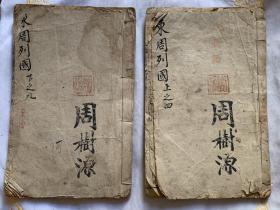 東周列國上之四
周樹源
東周列國下之九
周樹源